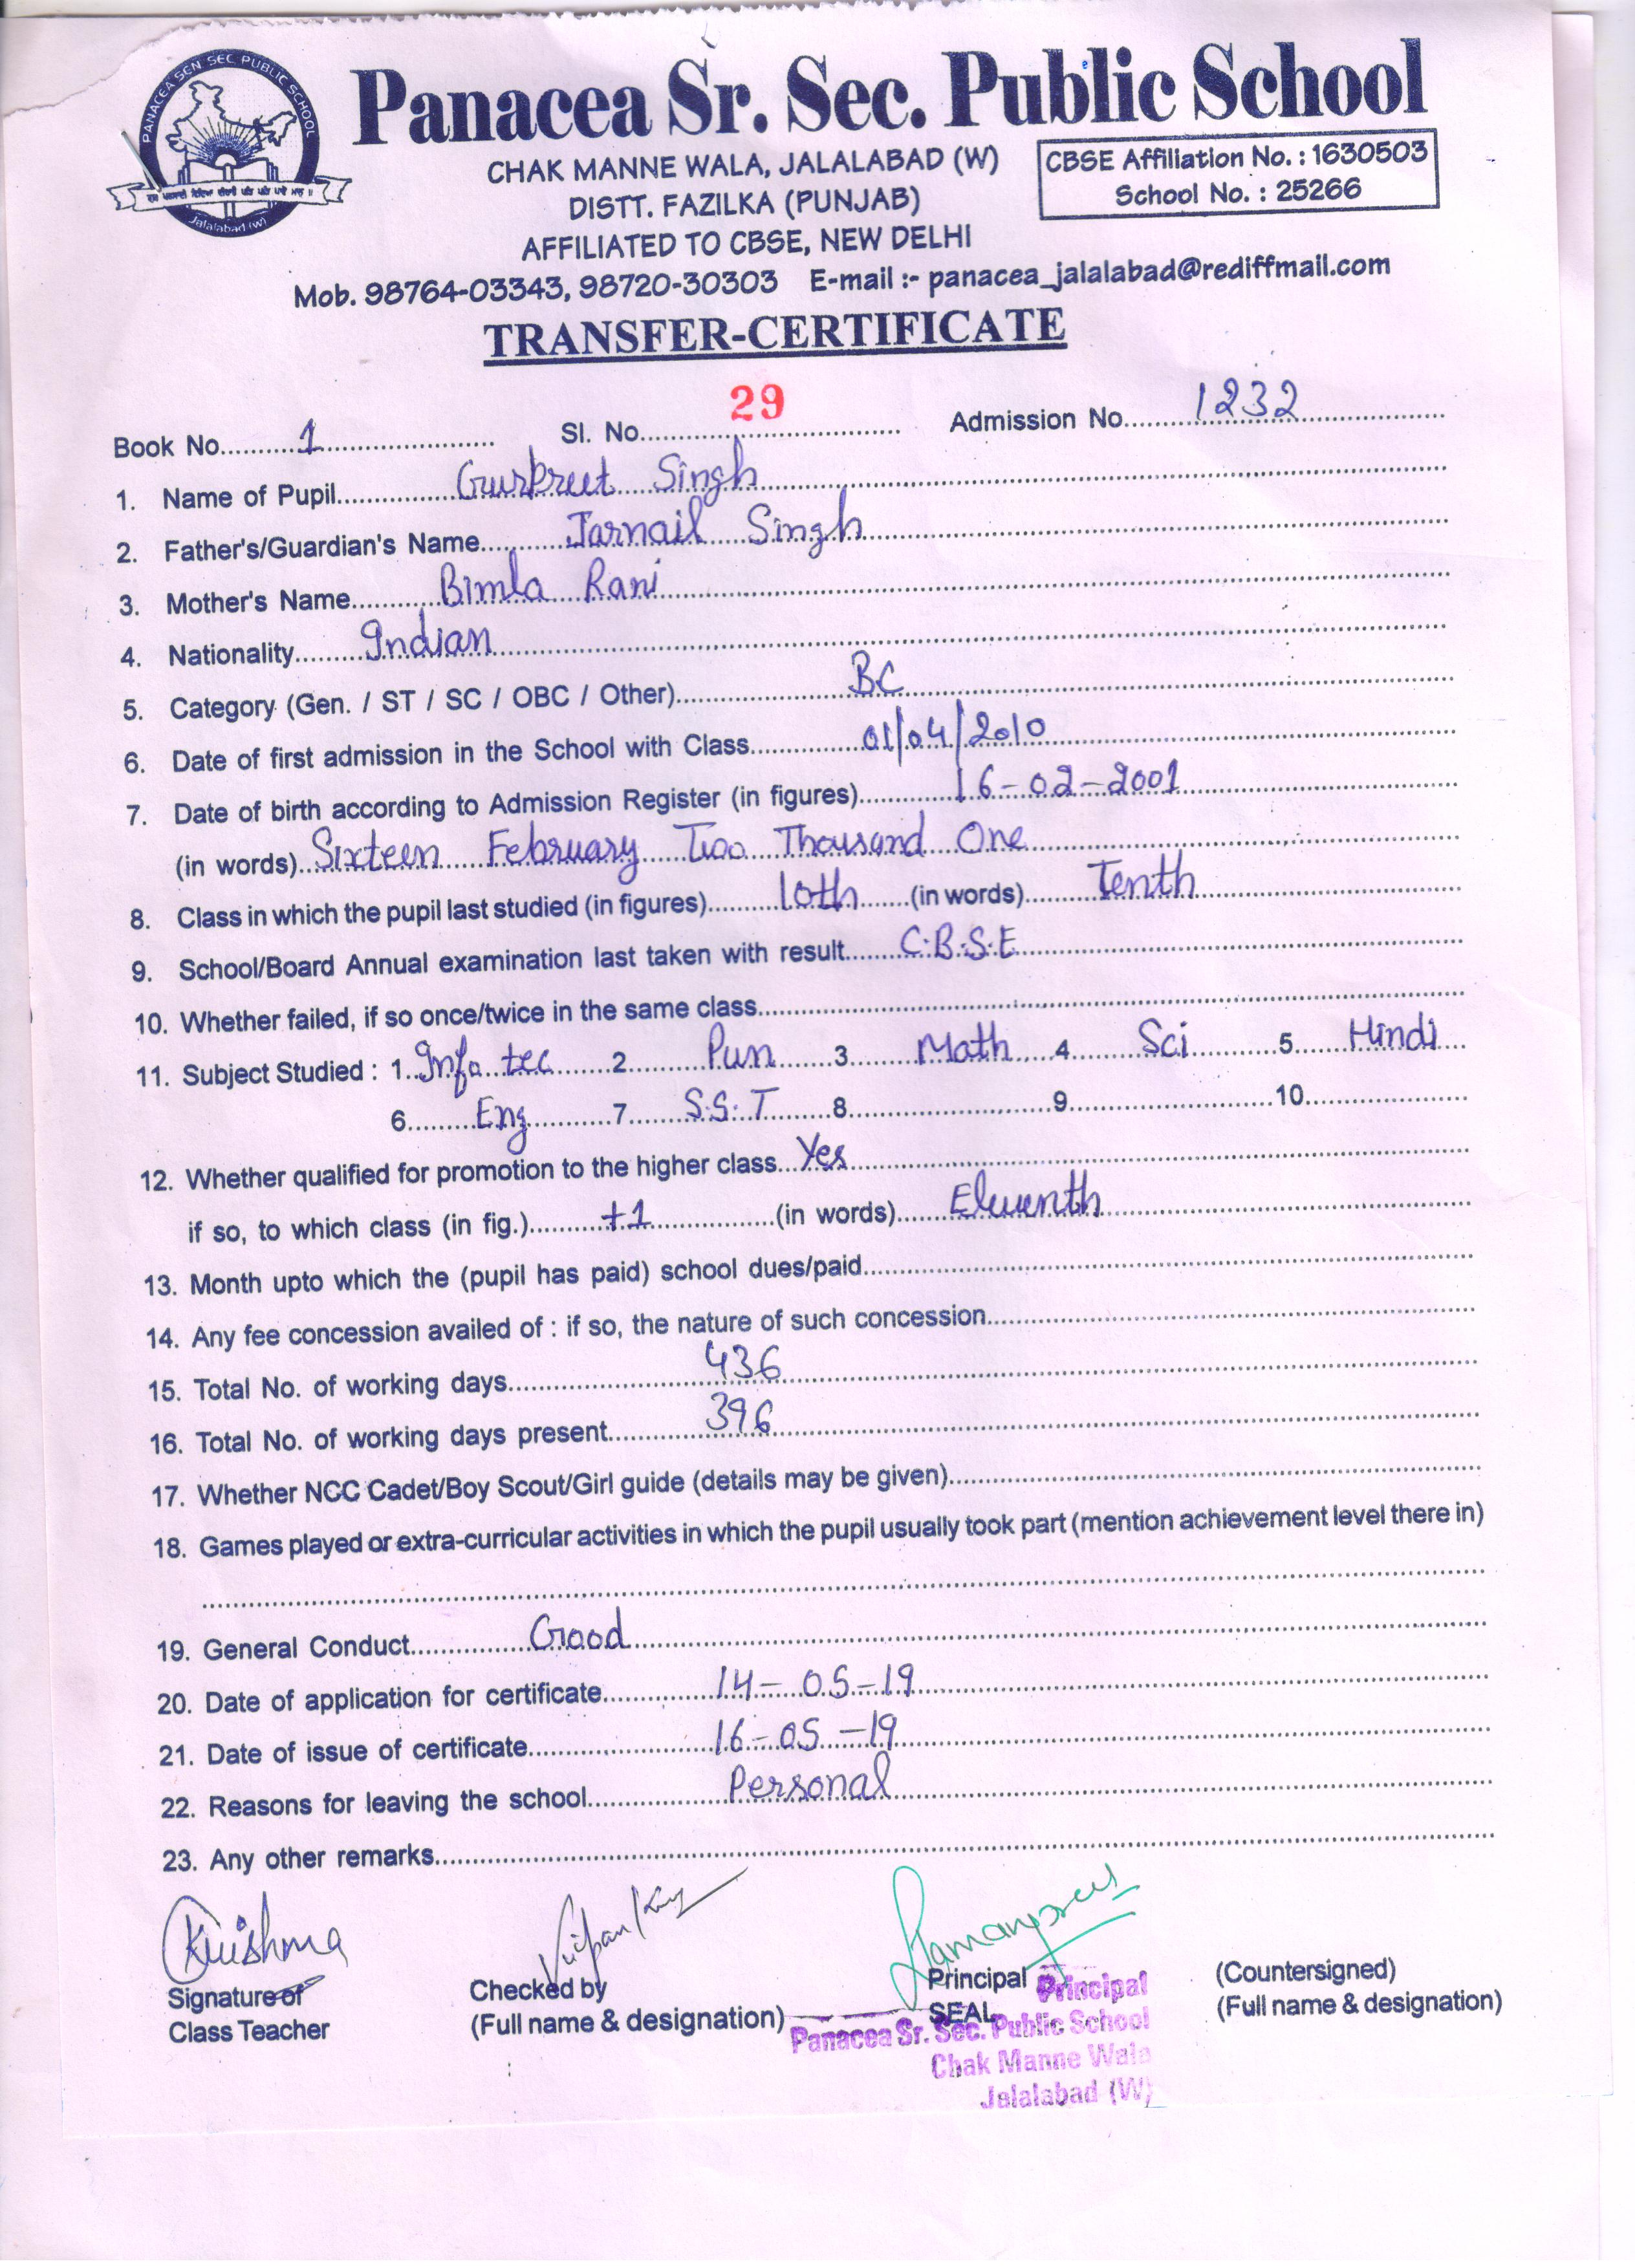 PANACEA SEN SEC PUBLIC SCHOOL
Jalalabad (W)
Panacea Sr. Sec. Public School
CHAK MANNE WALA, JALALABAD (W)
DISTT. FAZILKA (PUNJAB)
AFFILIATED TO CBSE, NEW DELHI
CBSE Affiliation No. : 1630503
School No. : 25266
Mob. 98764-03343, 98720-30303 E-mail :- panacea_jalalabad@rediffmail.com
TRANSFER-CERTIFICATE
Book No. 1 Sl. No. 29 Admission No. 1232
1. Name of Pupil Gurpreet Singh
2. Father's/Guardian's Name Jarnail Singh
3. Mother's Name Bimla Rani
4. Nationality Indian
5. Category (Gen. / ST / SC / OBC / Other) BC
6. Date of first admission in the School with Class 01/04/2010
7. Date of birth according to Admission Register (in figures) 16-02-2001
(in words) Sixteen February Two Thousand One
8. Class in which the pupil last studied (in figures) 10th (in words) Tenth
9. School/Board Annual examination last taken with result C.B.S.E
10. Whether failed, if so once/twice in the same class
11. Subject Studied : 1. Info tec 2. Pun 3. Math 4. Sci 5. Hindi
6. Eng 7. S.S.T 8. 9. 10.
12. Whether qualified for promotion to the higher class Yes
if so, to which class (in fig.) +1 (in words) Eleventh
13. Month upto which the (pupil has paid) school dues/paid
14. Any fee concession availed of : if so, the nature of such concession
15. Total No. of working days 436
16. Total No. of working days present 396
17. Whether NCC Cadet/Boy Scout/Girl guide (details may be given)
18. Games played or extra-curricular activities in which the pupil usually took part (mention achievement level there in)
19. General Conduct Good
20. Date of application for certificate 14-05-19
21. Date of issue of certificate 16-05-19
22. Reasons for leaving the school Personal
23. Any other remarks
Signature of
Class Teacher
Checked by
(Full name & designation)
Principal
SEAL
(Countersigned)
(Full name & designation)
Principal
Panacea Sr. Sec. Public School
Chak Manne Wala
Jalalabad (W)